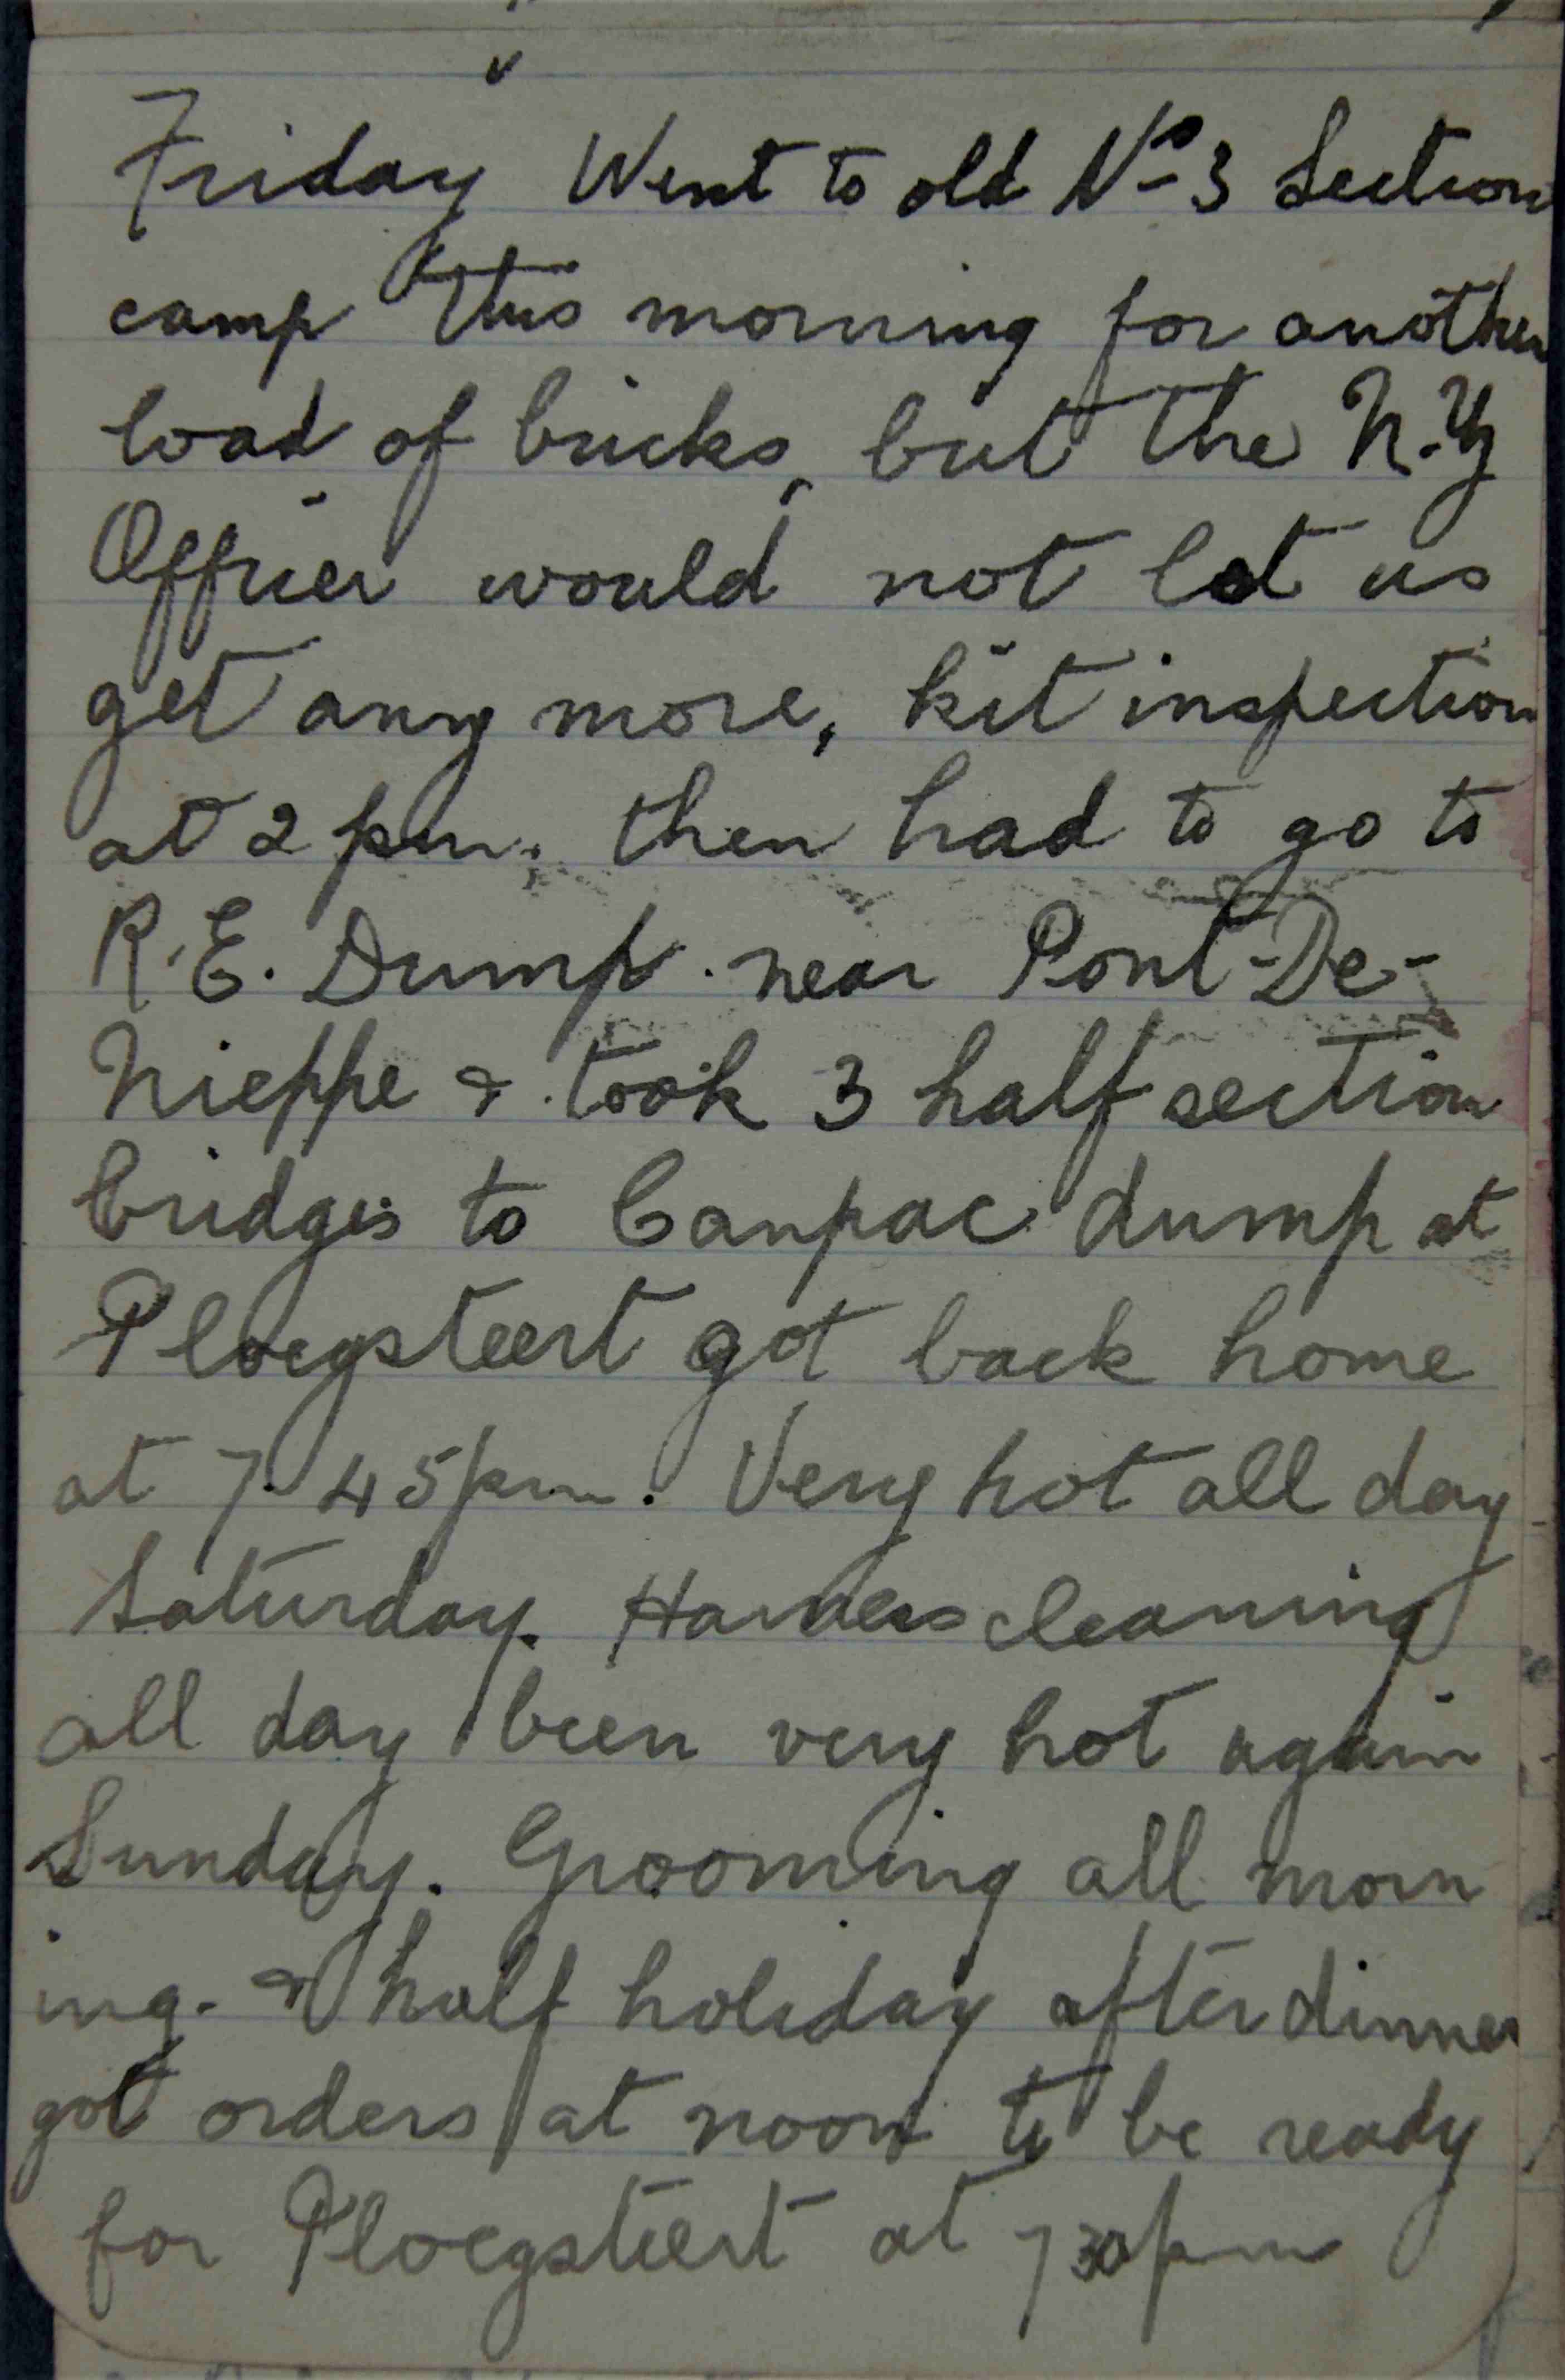 Friday Went to old No 3 Section
camp this morning for another
load of bricks, but the N.Z
Officer would not let us
get any more, kit inspection
at 2 pm. then had to go to
R.E. Dump. near Pont-De-
Nieppe & took 3 half section
bridges to Canpac dump at
Ploegsteert got back home
at 7.45pm. Very hot all day
Saturday. Harness cleaning
all day been very hot again
Sunday. Grooming all morn
ing. & half holiday after dinner
got orders at noon to be ready
for Ploegsteert at 7 30pm